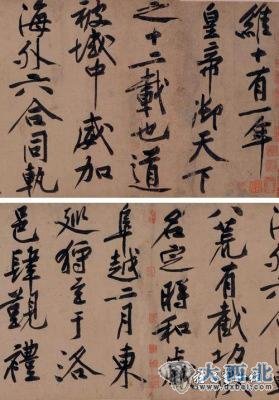 維十有一年
皇帝御天下
之十二載也道
被域中威加
海外六合同軌
八荒有截功
名定時和歲
阜越二月東
巡狩至于洛
邑肆覲禮
大西北